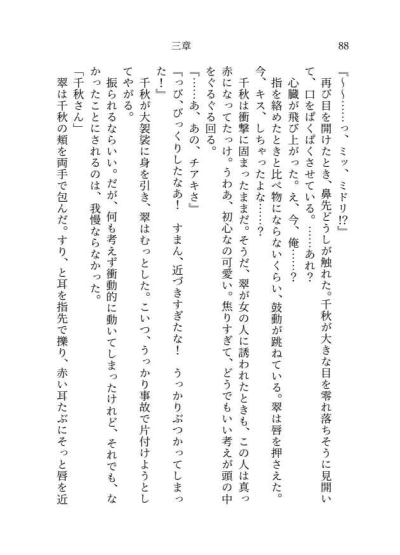 三章
88
『～～……っ、ミッ、ミドリ!?』
　再び目を開けたとき、鼻先どうしが触れた。千秋が大きな目を零れ落ちそうに見開い
て、口をぱくぱくさせている。……あれ?
　心臓が飛び上がった。え、今、俺……?
　指を絡めたときと比べ物にならないくらい、鼓動が跳ねている。翠は唇を押さえた。
今、キス、しちゃったよな……?
　千秋は衝撃に固まったままだ。そうだ、翠が女の人に誘われたときも、この人は真っ
赤になってたっけ。うわあ、初心なの可愛い。焦りすぎて、どうでもいい考えが頭の中
をぐるぐる回る。
『……あ、あの、チアキさ』
『っび、びっくりしたなあ!　すまん、近づきすぎたな!　うっかりぶつかってしまっ
た!』
　千秋が大袈裟に身を引き、翠はむっとした。こいつ、うっかり事故で片付けようとし
てやがる。
　振られるならいい。だが、何も考えず衝動的に動いてしまったけれど、それでも、な
かったことにされるのは、我慢ならなかった。
『千秋さん』
　翠は千秋の頬を両手で包んだ。すり、と耳を指先で擽り、赤い耳たぶにそっと唇を近